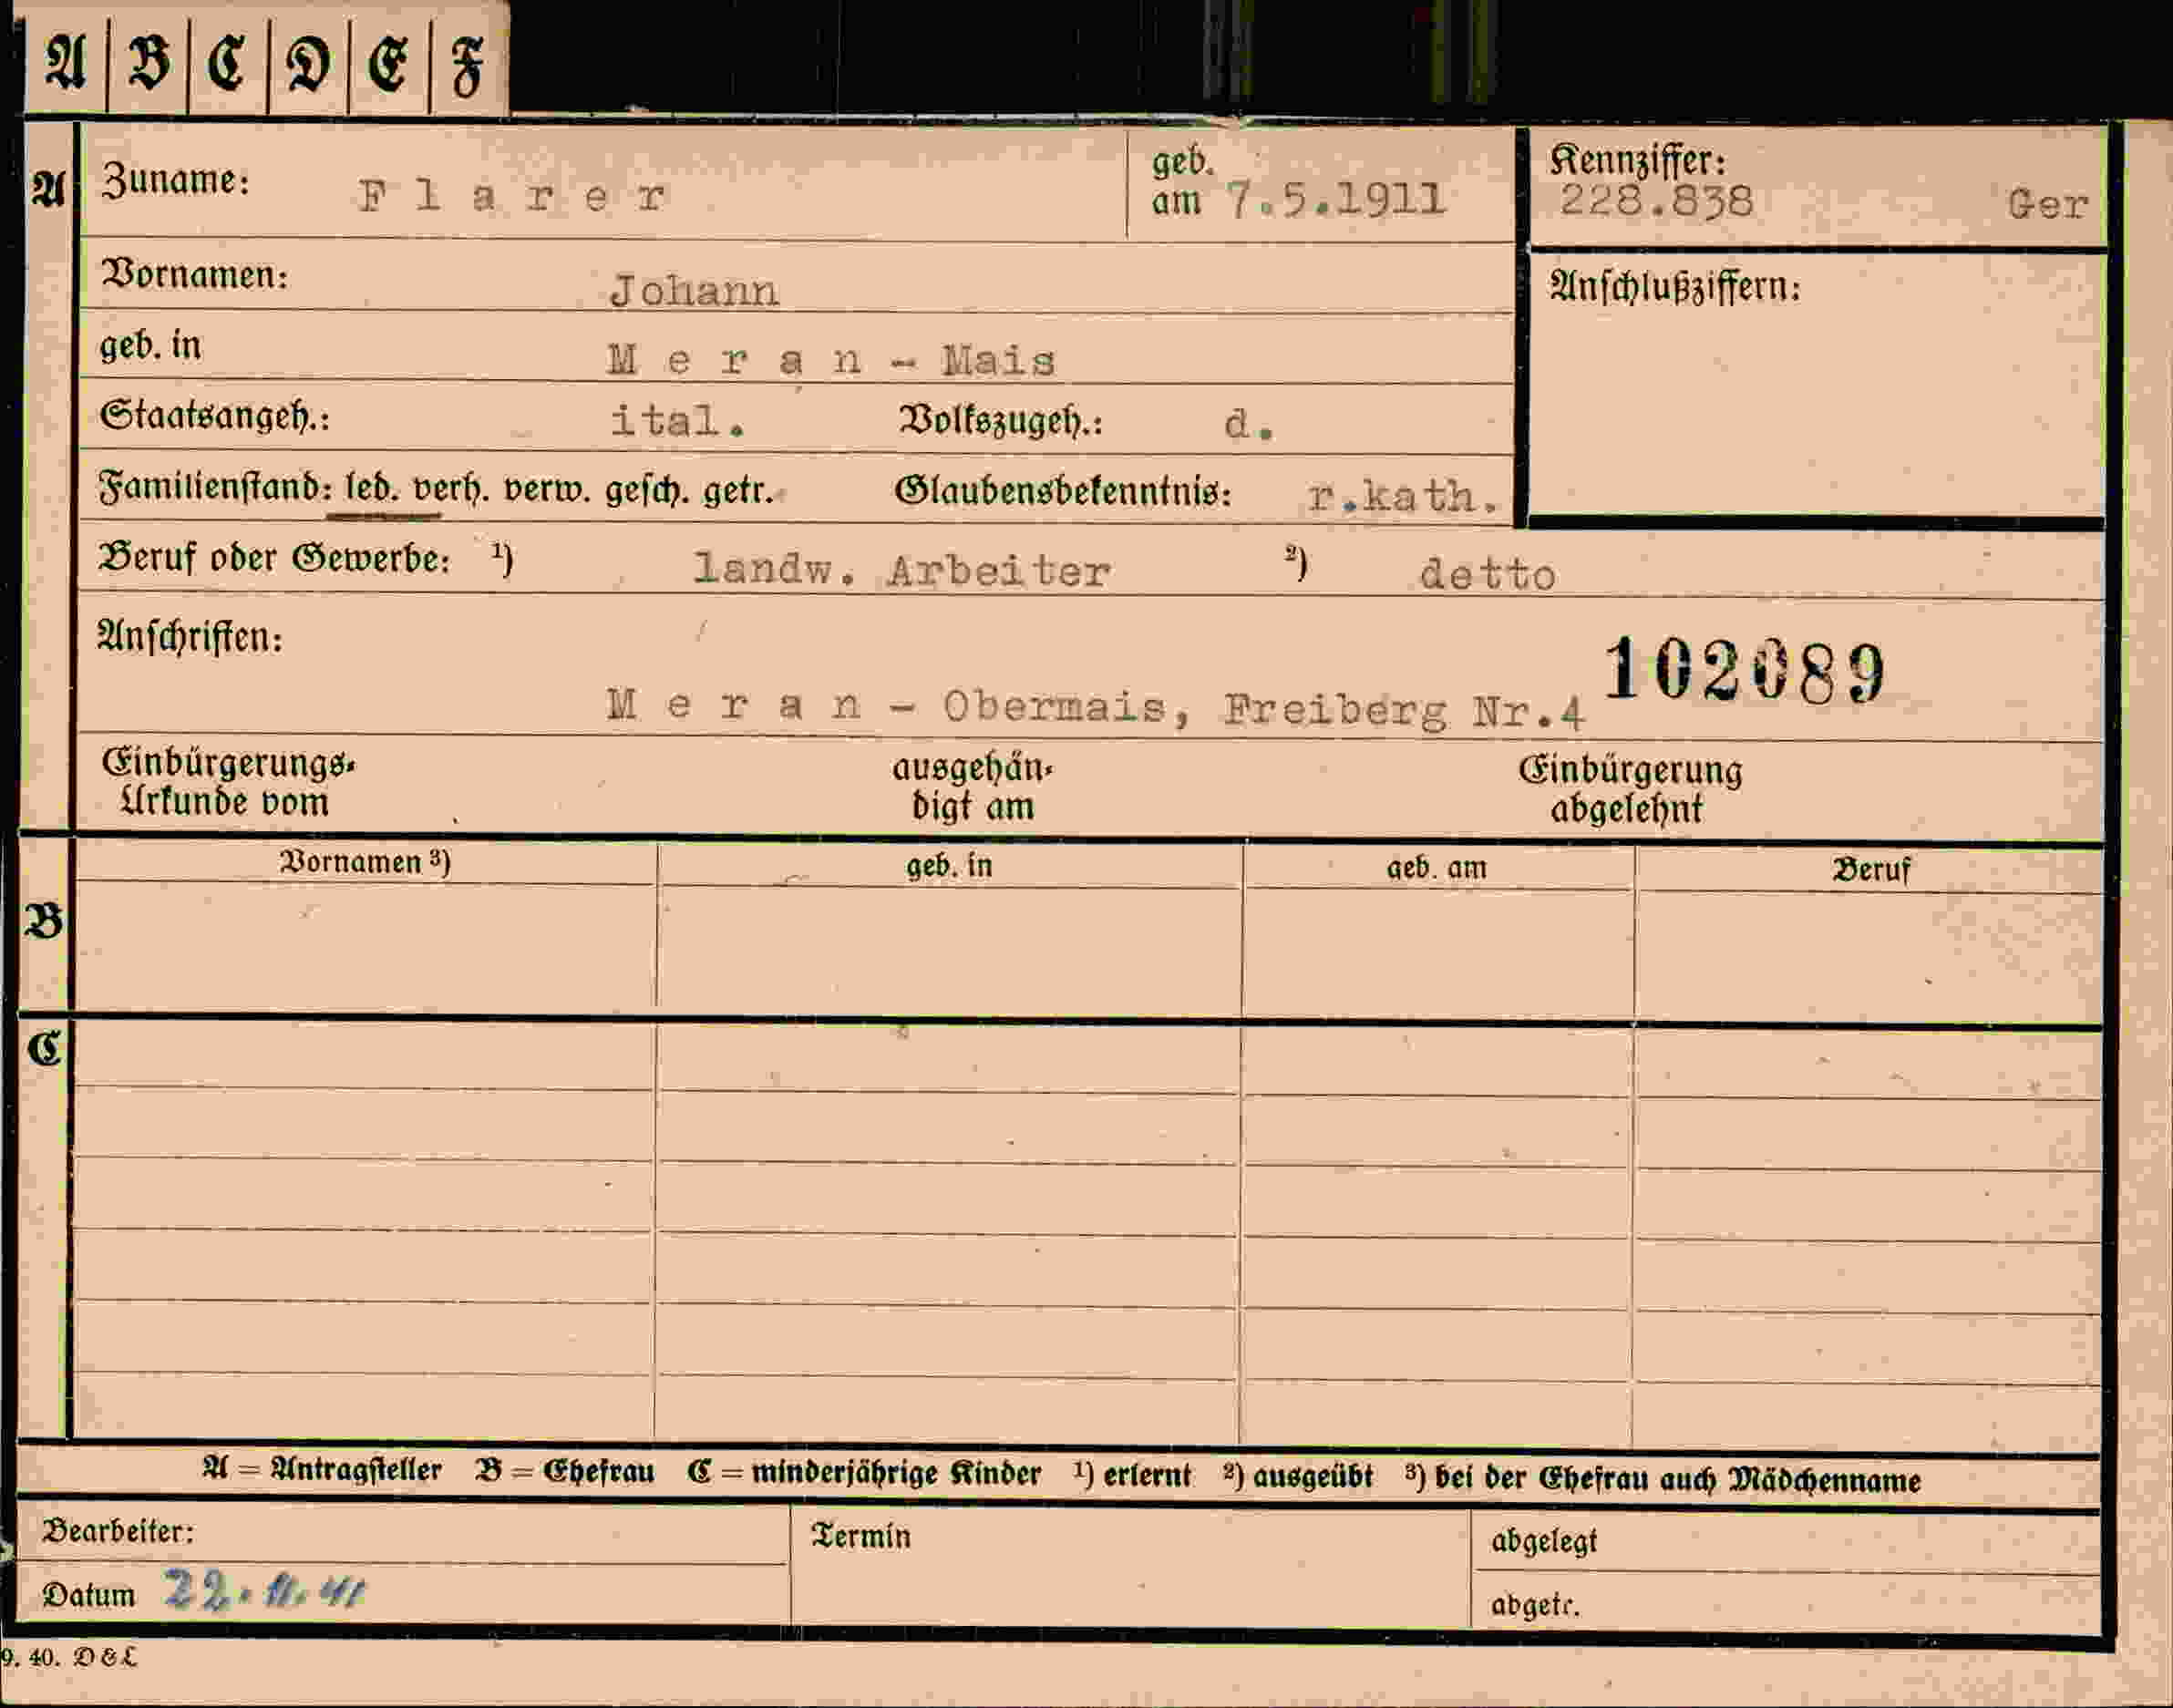 A B C D E F
A Zuname: Flarer geb. am 7.5.1911 Kennziffer: 228.838 Ger
Vornamen: Johann Anschlußziffern:
geb. in Meran - Mais
Staatsangeh.: ital. Volkszugeh.: d.
Familienstand: led. verh. verw. gesch. getr. Glaubensbekenntnis: r.kath.
Beruf oder Gewerbe: ¹) landw. Arbeiter ²) detto
Anschriften: 102089
Meran - Obermais, Freiberg Nr.4
Einbürgerungs- ausgehän- Einbürgerung
Urkunde vom digt am abgelehnt
Vornamen ³) geb. in geb. am Beruf
B
C
A = Antragsteller B = Ehefrau C = minderjährige Kinder ¹) erlernt ²) ausgeübt ³) bei der Ehefrau auch Mädchenname
Bearbeiter: Termin abgelegt
Datum 22. 11. 41 abgetr.
9. 40. D & L